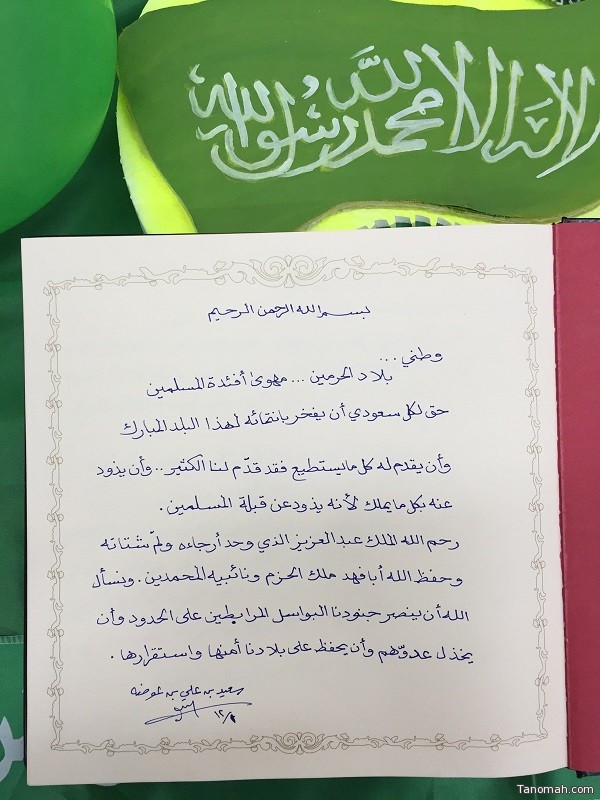 لا إله إلا الله محمد رسول الله
بسم الله الرحمن الرحيم
وطني...
بلاد الحرمين... مهوى أفئدة المسلمين
حق لكل سعودي أن يفخر بانتمائه لهذا البلد المبارك
وأن يقدم له كل ما يستطيع فقد قدّم لنا الكثير.. وأن يذود
عنه بكل ما يملك لأنه يذود عن قبلة المسلمين.
رحم الله الملك عبد العزيز الذي وحد أرجاءه ولمّ شتاته
وحفظ الله أبا فهد ملك الحزم ونائبيه المحمدين. ونسأل
الله أن ينصر جنودنا البواسل المرابطين على الحدود وأن
يخذل عدوّهم وأن يحفظ على بلادنا أمنها واستقرارها.
سعيد بن علي بن عوضه
Tanomah.com